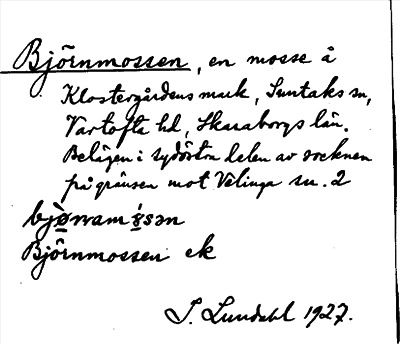 Björnmossen, en mosse å
Klostergårdens mark, Suntaks sn,
Vartofta hd, Skaraborgs län.
Belägen i sydöstra delen av socknen
på gränsen mot Vilinga sn. 2
Björnmossen ek
S. Lundahl 1927.